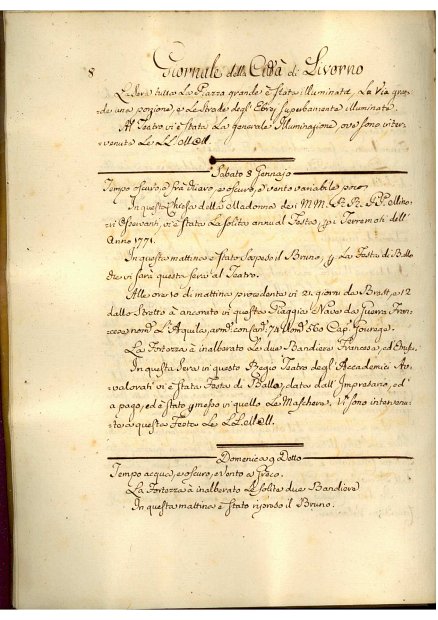 8
Giornale della Città di Livorno
La sera tutta La Piazza grande è stata illuminata, La Via gran-
de una porzione, e Le Strade degl'Ebrej superbamente illuminate.
Al Teatro vi è stata La generale Illuminazione, ove sono inter-
venute Le LL.
Sabato 8 Gennajo
Tempo oscuro, e frà chiaro, e oscuro, e vento variabile poco
In questa Chiesa della Madonna de i MM. RR. PP. Mino-
ri Osservanti, vi è stata La solita annual Festa, p i Terremoti dell'
Anno 1771.
In questa mattina è stato sospeso il Bruno, p La Festa di Ballo
che vi sarà questa sera al Teatro.
Alle ore di mattina procedente in 21 giorni da Brest, e 12
dallo Stretto è ancorato in questa Piaggia Nave da Guerra Fran-
cese nom. L'Aquila, arm. con 74 Uom. 560 Cap.
La Fortezza à inalberato Le due Bandiere Francese, ed
In questa Sera in questo Regio Teatro degl'Accademici Av-
valorati vi è stata Festa di Ballo, data dall'Impresario, ed
a pago, ed è stato p messo in quello Le Maschere. Vi sono interve-
nute a questa Festa Le LL.
Domenica 9 Detto
Tempo acqua, e oscuro, e Vento a Greco.
La Fortezza à inalberato Le solite due Bandiere
In questa mattina è stato ripreso il Bruno.